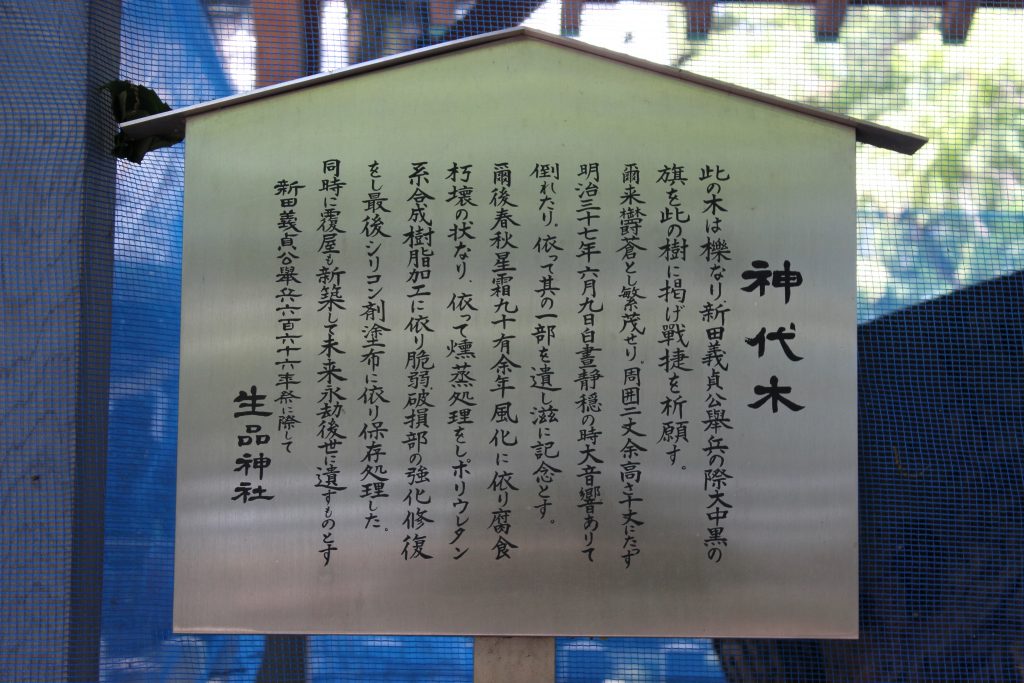 神代木
此の木は櫟なり、新田義貞公舉兵の際大中黒の
旗を此の樹に掲げ戰捷を祈願す。
爾来欝蒼とし繁茂せり、周囲二丈余高さ十丈にたっす
明治三十七年六月九日白晝靜穏の時大音響ありて
倒れたり、依って其の一部を遺し滋に記念とす。
爾後春秋星霜九十有余年風化に依り腐食
朽壊の状なり、依って燻蒸処理をしポリウレタン
系合成樹脂加工に依り脆弱破損部の強化修復
をし最後シリコン剤塗布に依り保存処理した。
同時に覆屋も新築して未来永劫後世に遺すものとす
新田義貞公舉兵六百六十六年祭に際して
生品神社